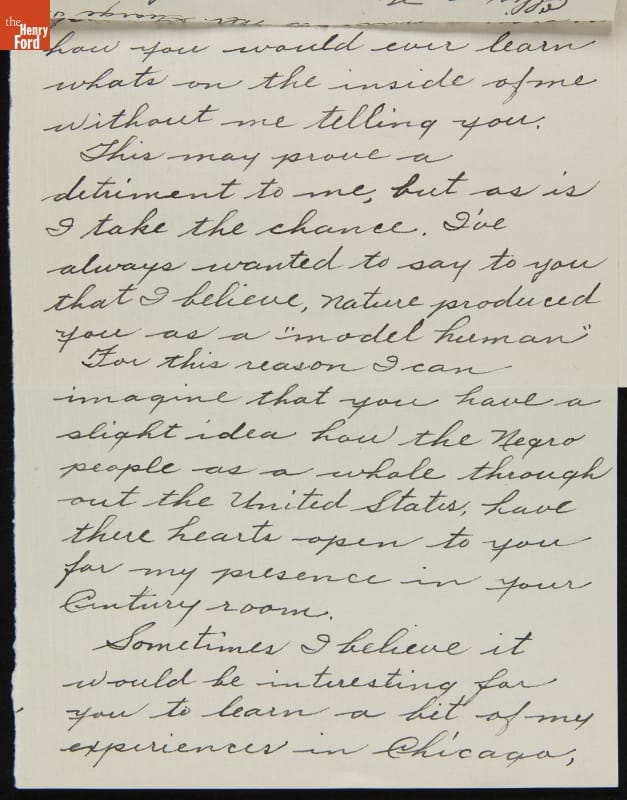 the
Henry
Ford
how you would ever learn
whats on the inside of me
without me telling you.
This may prove a
detriment to me, but as is
I take the chance. I've
always wanted to say to you
that I believe, nature produced
you as a "model human"
For this reason I can
imagine that you have a
slight idea how the Negro
people as a whole through
out the United States, have
there hearts open to you
for my presence in your
Century room.
Sometimes I believe it
would be interesting for
you to learn a bit of my
experiences in Chicago,